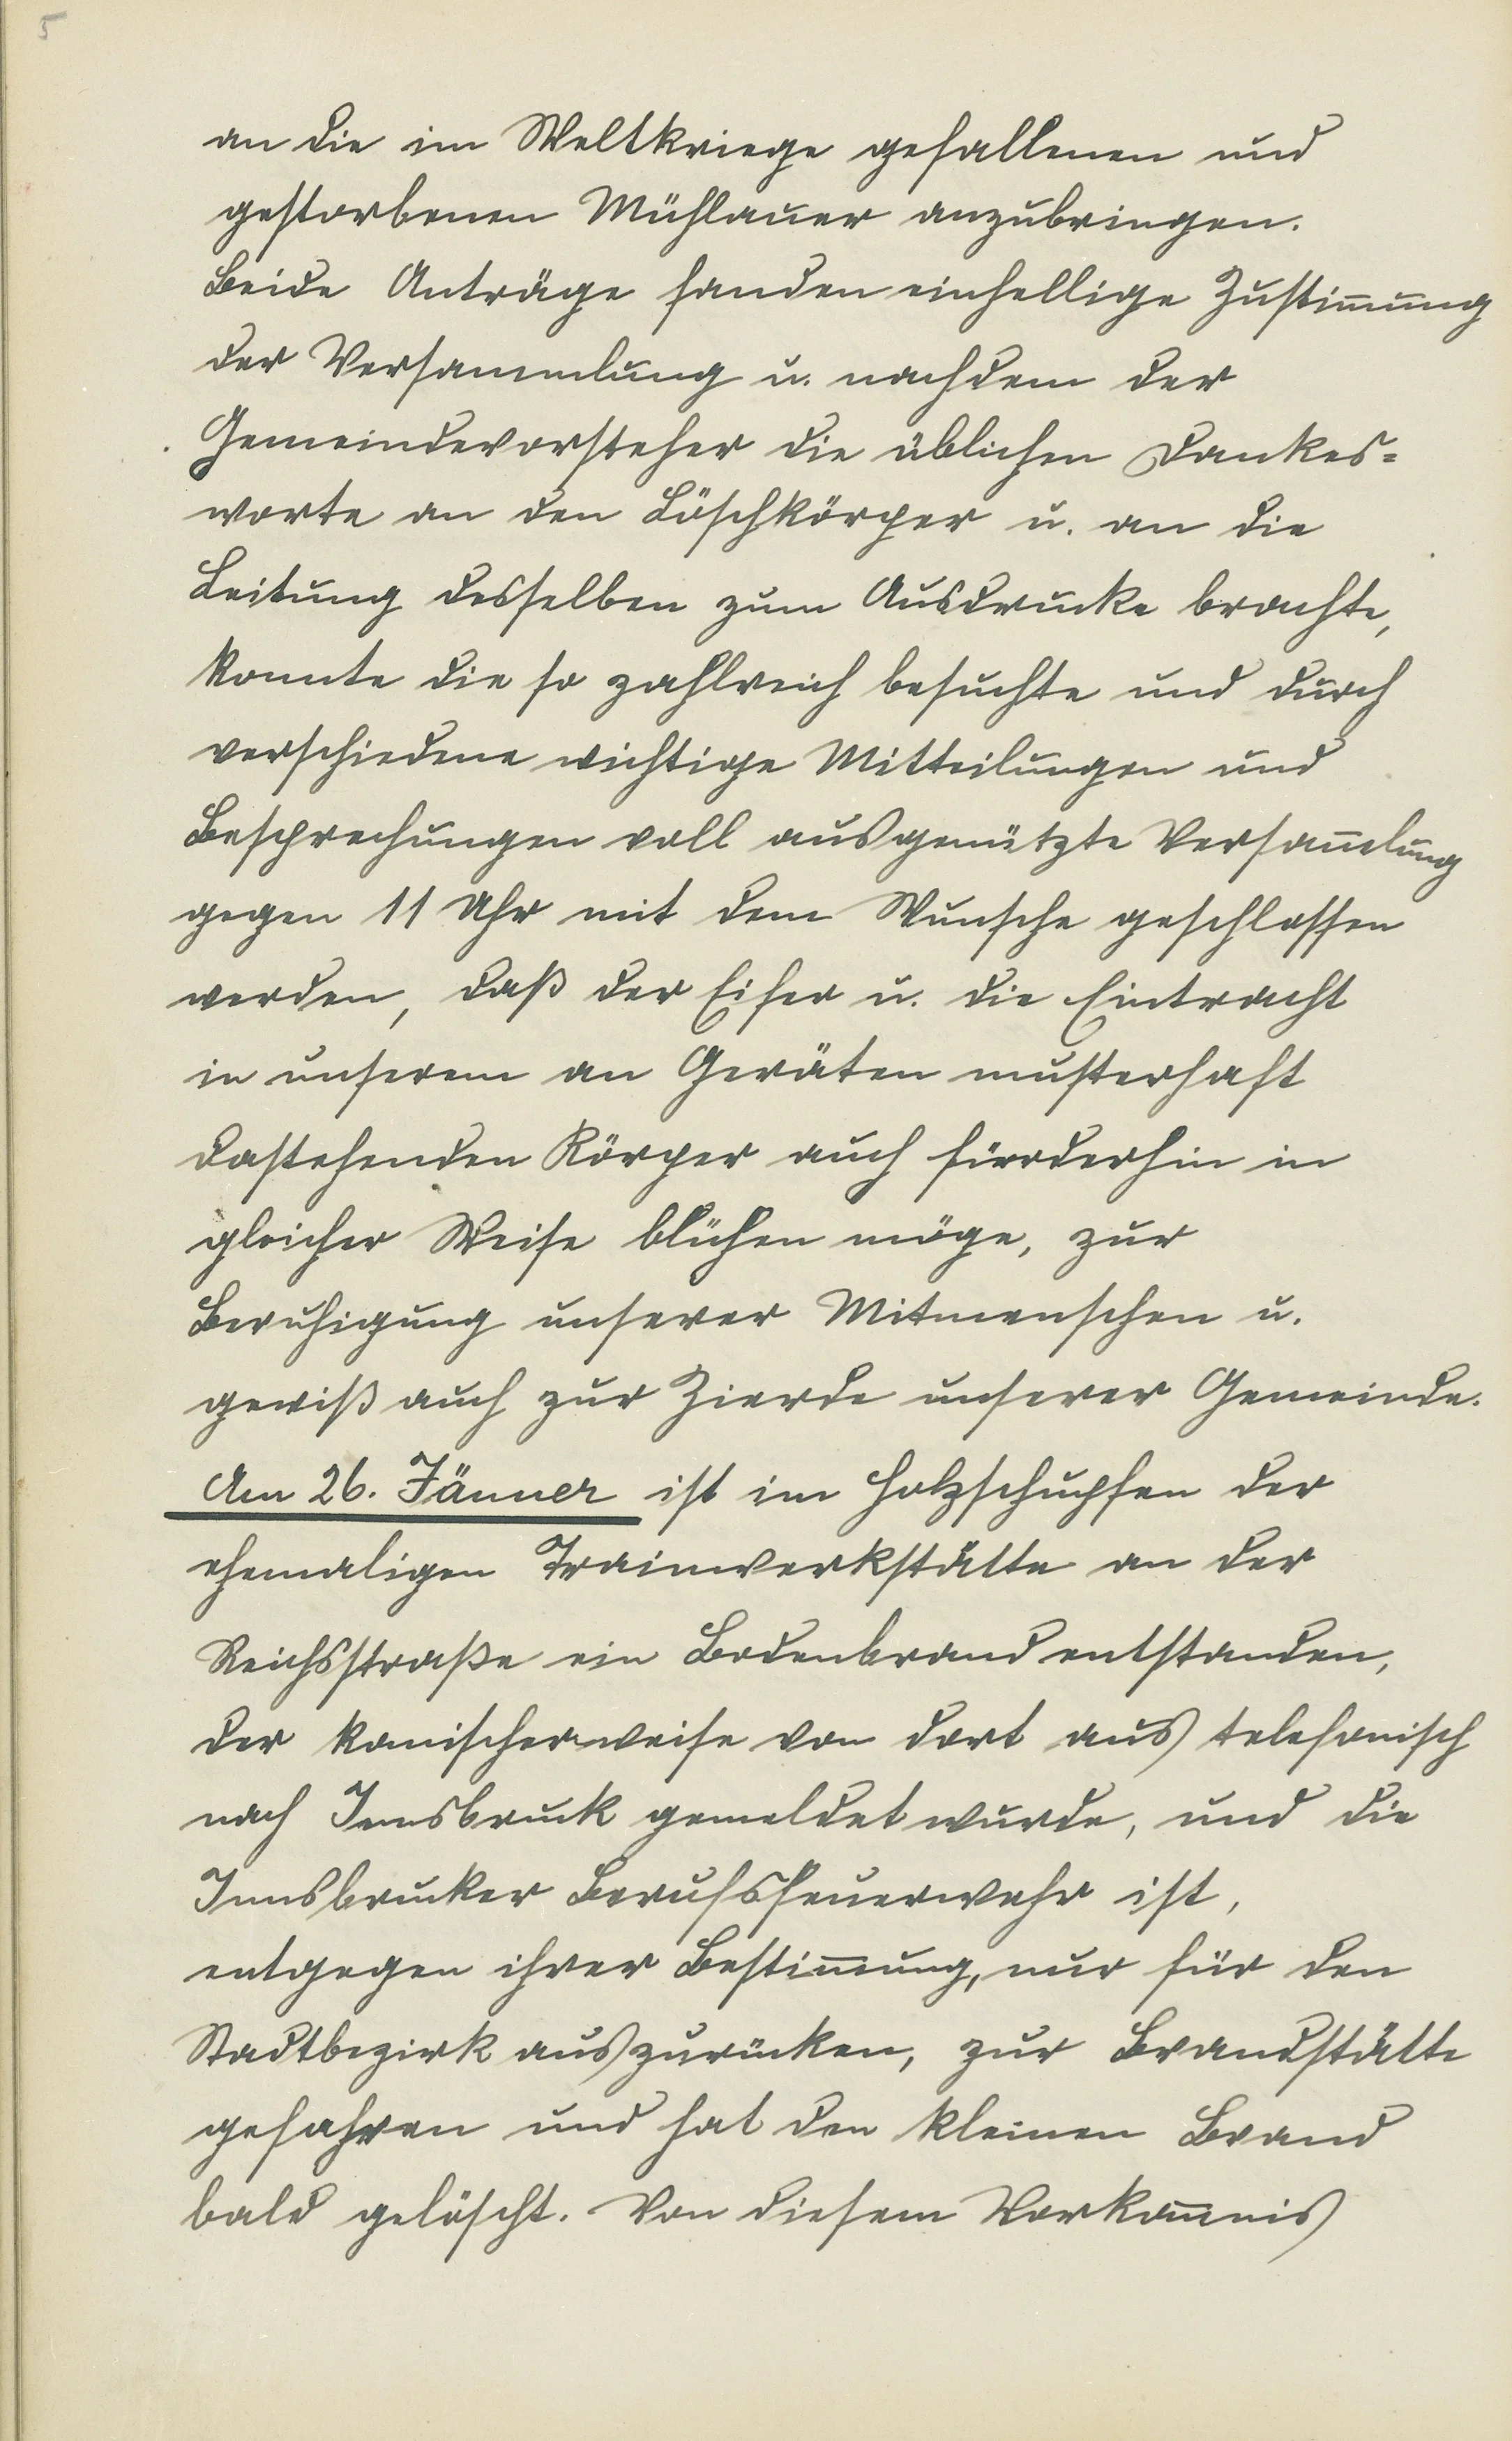 5
an die im Weltkriege gefallenen und
gestorbenen Mühlauer anzubringen.
Beide Anträge fanden einhellige Zustim̄ung
der Versammlung u. nachdem der
Gemeindevorsteher die üblichen Dankes=
worte an den Löschkörper u. an die
Leitung desselben zum Ausdrucke brachte,
konnte die so zahlreich besuchte und durch
verschiedene wichtige Mitteilungen und
Besprechungen voll ausgenützte Versam̄lung
gegen 11 Uhr mit dem Wunsche geschlossen
werden, daß der Eifer u. die Eintracht
in unserem an Geräten musterhaft
dastehenden Körper auch fürderhin in
gleicher Weise blühen möge, zur
Beruhigung unserer Mitmenschen u.
gewiß auch zur Zierde unserer Gemeinde.
Am 26. Jänner ist im Holzschupfen der
ehemaligen Trainwerkstätte an der
Reichsstraße ein Bodenbrand entstanden,
der komischerweise von dort aus telefonisch
nach Innsbruck gemeldet wurde, und die
Innsbrucker Berufsfeuerwehr ist,
entgegen ihrer Bestim̄ung, nur für den
Stadtbezirk auszurücken, zur Brandstätte
gefahren und hat den kleinen Brand
bald gelöscht. Von diesem Vorkom̄nis